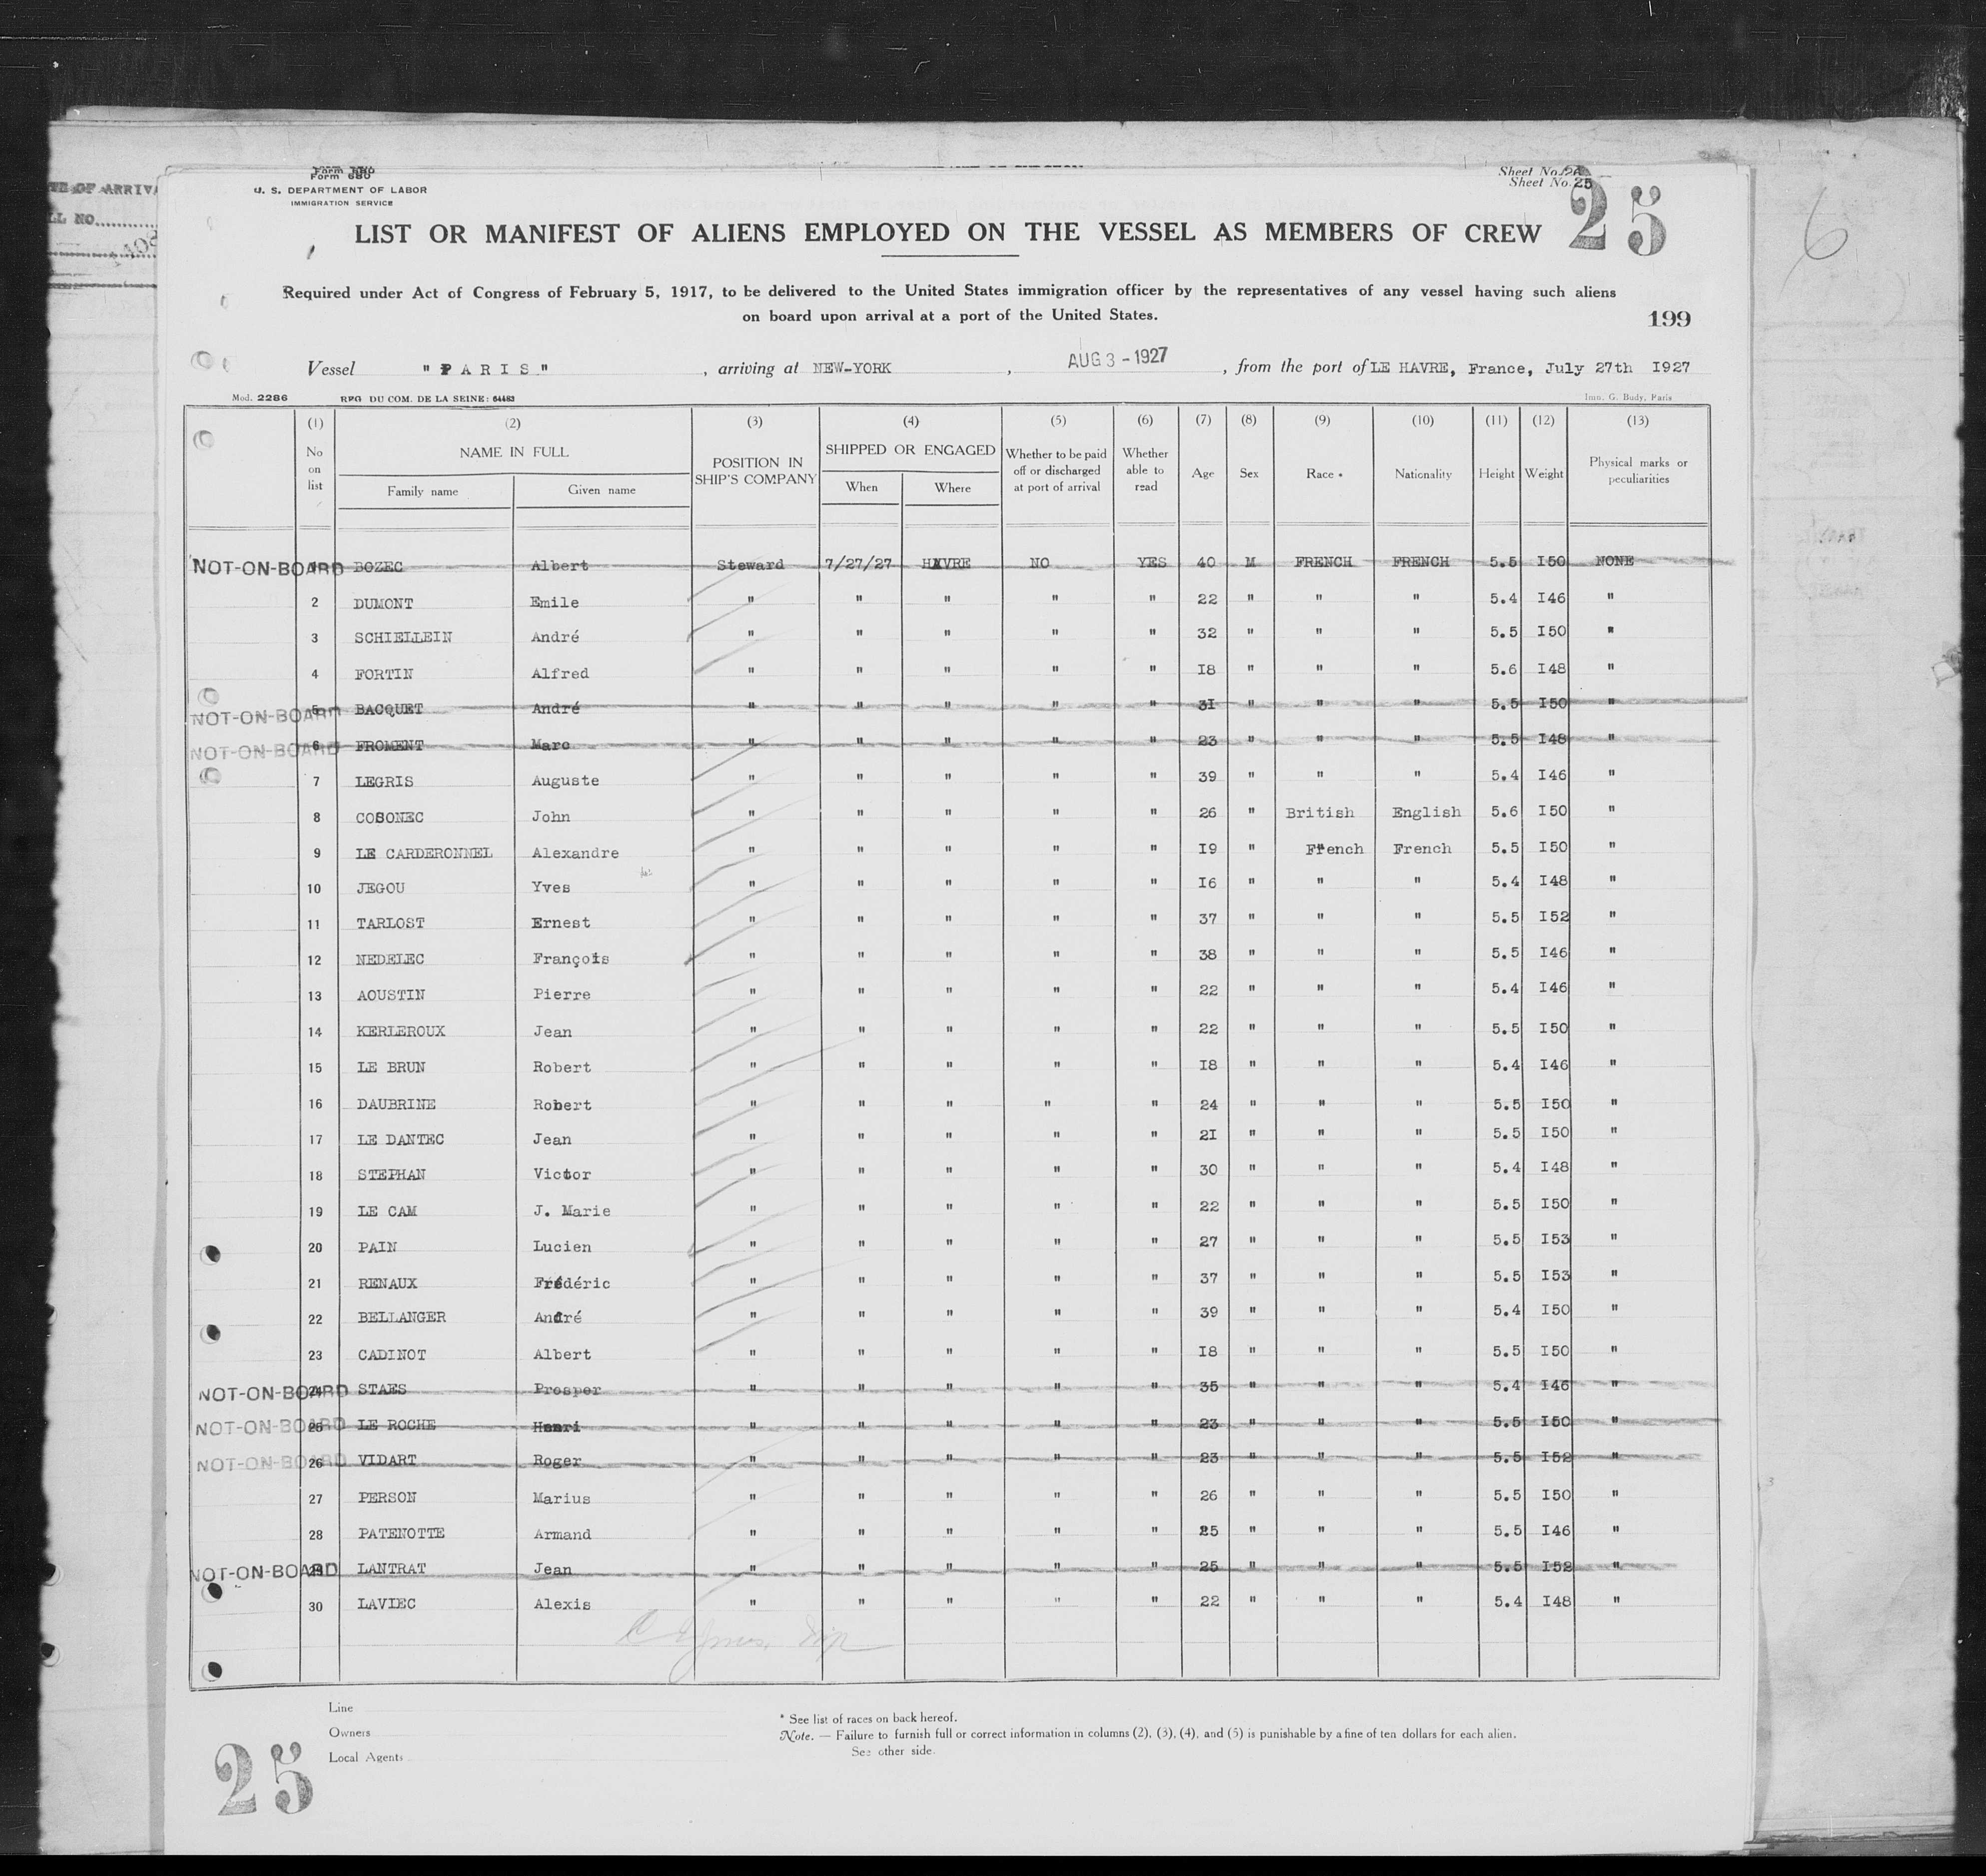 TE OF ARRIVA
LL NO
Form 680
U. S. DEPARTMENT OF LABOR
IMMIGRATION SERVICE
Sheet No. 26
Sheet No. 25
25
6
LIST OR MANIFEST OF ALIENS EMPLOYED ON THE VESSEL AS MEMBERS OF CREW
Required under Act of Congress of February 5, 1917, to be delivered to the United States immigration officer by the representatives of any vessel having such aliens
on board upon arrival at a port of the United States.
199
Vessel "PARIS", arriving at NEW-YORK, AUG 3 - 1927, from the port of LE HAVRE, France, July 27th 1927
Mod. 2286 RPG DU COM. DE LA SEINE: 64483 Imp. G. Budy, Paris
(1) (2) (3) (4) (5) (6) (7) (8) (9) (10) (11) (12) (13)
No on list NAME IN FULL Family name Given name POSITION IN SHIP'S COMPANY SHIPPED OR ENGAGED When Where Whether to be paid off or discharged at port of arrival Whether able to read Age Sex Race * Nationality Height Weight Physical marks or peculiarities
NOT-ON-BOARD 1 BOZEC Albert Steward 7/27/27 HAVRE NO YES 40 M FRENCH FRENCH 5.5 I50 NONE
2 DUMONT Emile " " " " " 22 " " " 5.4 I46 "
3 SCHIELLEIN André " " " " " 32 " " " 5.5 I50 "
4 FORTIN Alfred " " " " " I8 " " " 5.6 I48 "
NOT-ON-BOARD 5 BACQUET André " " " " " 3I " " " 5.5 I50 "
NOT-ON-BOARD 6 FROMENT Marc " " " " " 23 " " " 5.5 I48 "
7 LEGRIS Auguste " " " " " 39 " " " 5.4 I46 "
8 COSONEC John " " " " " 26 " British English 5.6 I50 "
9 LE CARDERONNEL Alexandre " " " " " I9 " French French 5.5 I50 "
10 JEGOU Yves " " " " " I6 " " " 5.4 I48 "
11 TARLOST Ernest " " " " " 37 " " " 5.5 I52 "
12 NEDELEC François " " " " " 38 " " " 5.5 I46 "
13 AOUSTIN Pierre " " " " " 22 " " " 5.4 I46 "
14 KERLEROUX Jean " " " " " 22 " " " 5.5 I50 "
15 LE BRUN Robert " " " " " I8 " " " 5.4 I46 "
16 DAUBRINE Robert " " " " " 24 " " " 5.5 I50 "
17 LE DANTEC Jean " " " " " 2I " " " 5.5 I50 "
18 STEPHAN Victor " " " " " 30 " " " 5.4 I48 "
19 LE CAM J. Marie " " " " " 22 " " " 5.5 I50 "
20 PAIN Lucien " " " " " 27 " " " 5.5 I53 "
21 RENAUX Frédéric " " " " " 37 " " " 5.5 I53 "
22 BELLANGER André " " " " " 39 " " " 5.4 I50 "
23 CADINOT Albert " " " " " I8 " " " 5.5 I50 "
NOT-ON-BOARD 24 STAES Prosper " " " " " 35 " " " 5.4 I46 "
NOT-ON-BOARD 25 LE ROCHE Henri " " " " " 23 " " " 5.5 I50 "
NOT-ON-BOARD 26 VIDART Roger " " " " " 23 " " " 5.5 I52 "
27 PERSON Marius " " " " " 26 " " " 5.5 I50 "
28 PATENOTTE Armand " " " " " 25 " " " 5.5 I46 "
NOT-ON-BOARD 29 LANTRAT Jean " " " " " 25 " " " 5.5 I52 "
30 LAVIEC Alexis " " " " " 22 " " " 5.4 I48 "
Line
Owners
Local Agents
* See list of races on back hereof.
Note. — Failure to furnish full or correct information in columns (2), (3), (4), and (5) is punishable by a fine of ten dollars for each alien.
See other side.
25